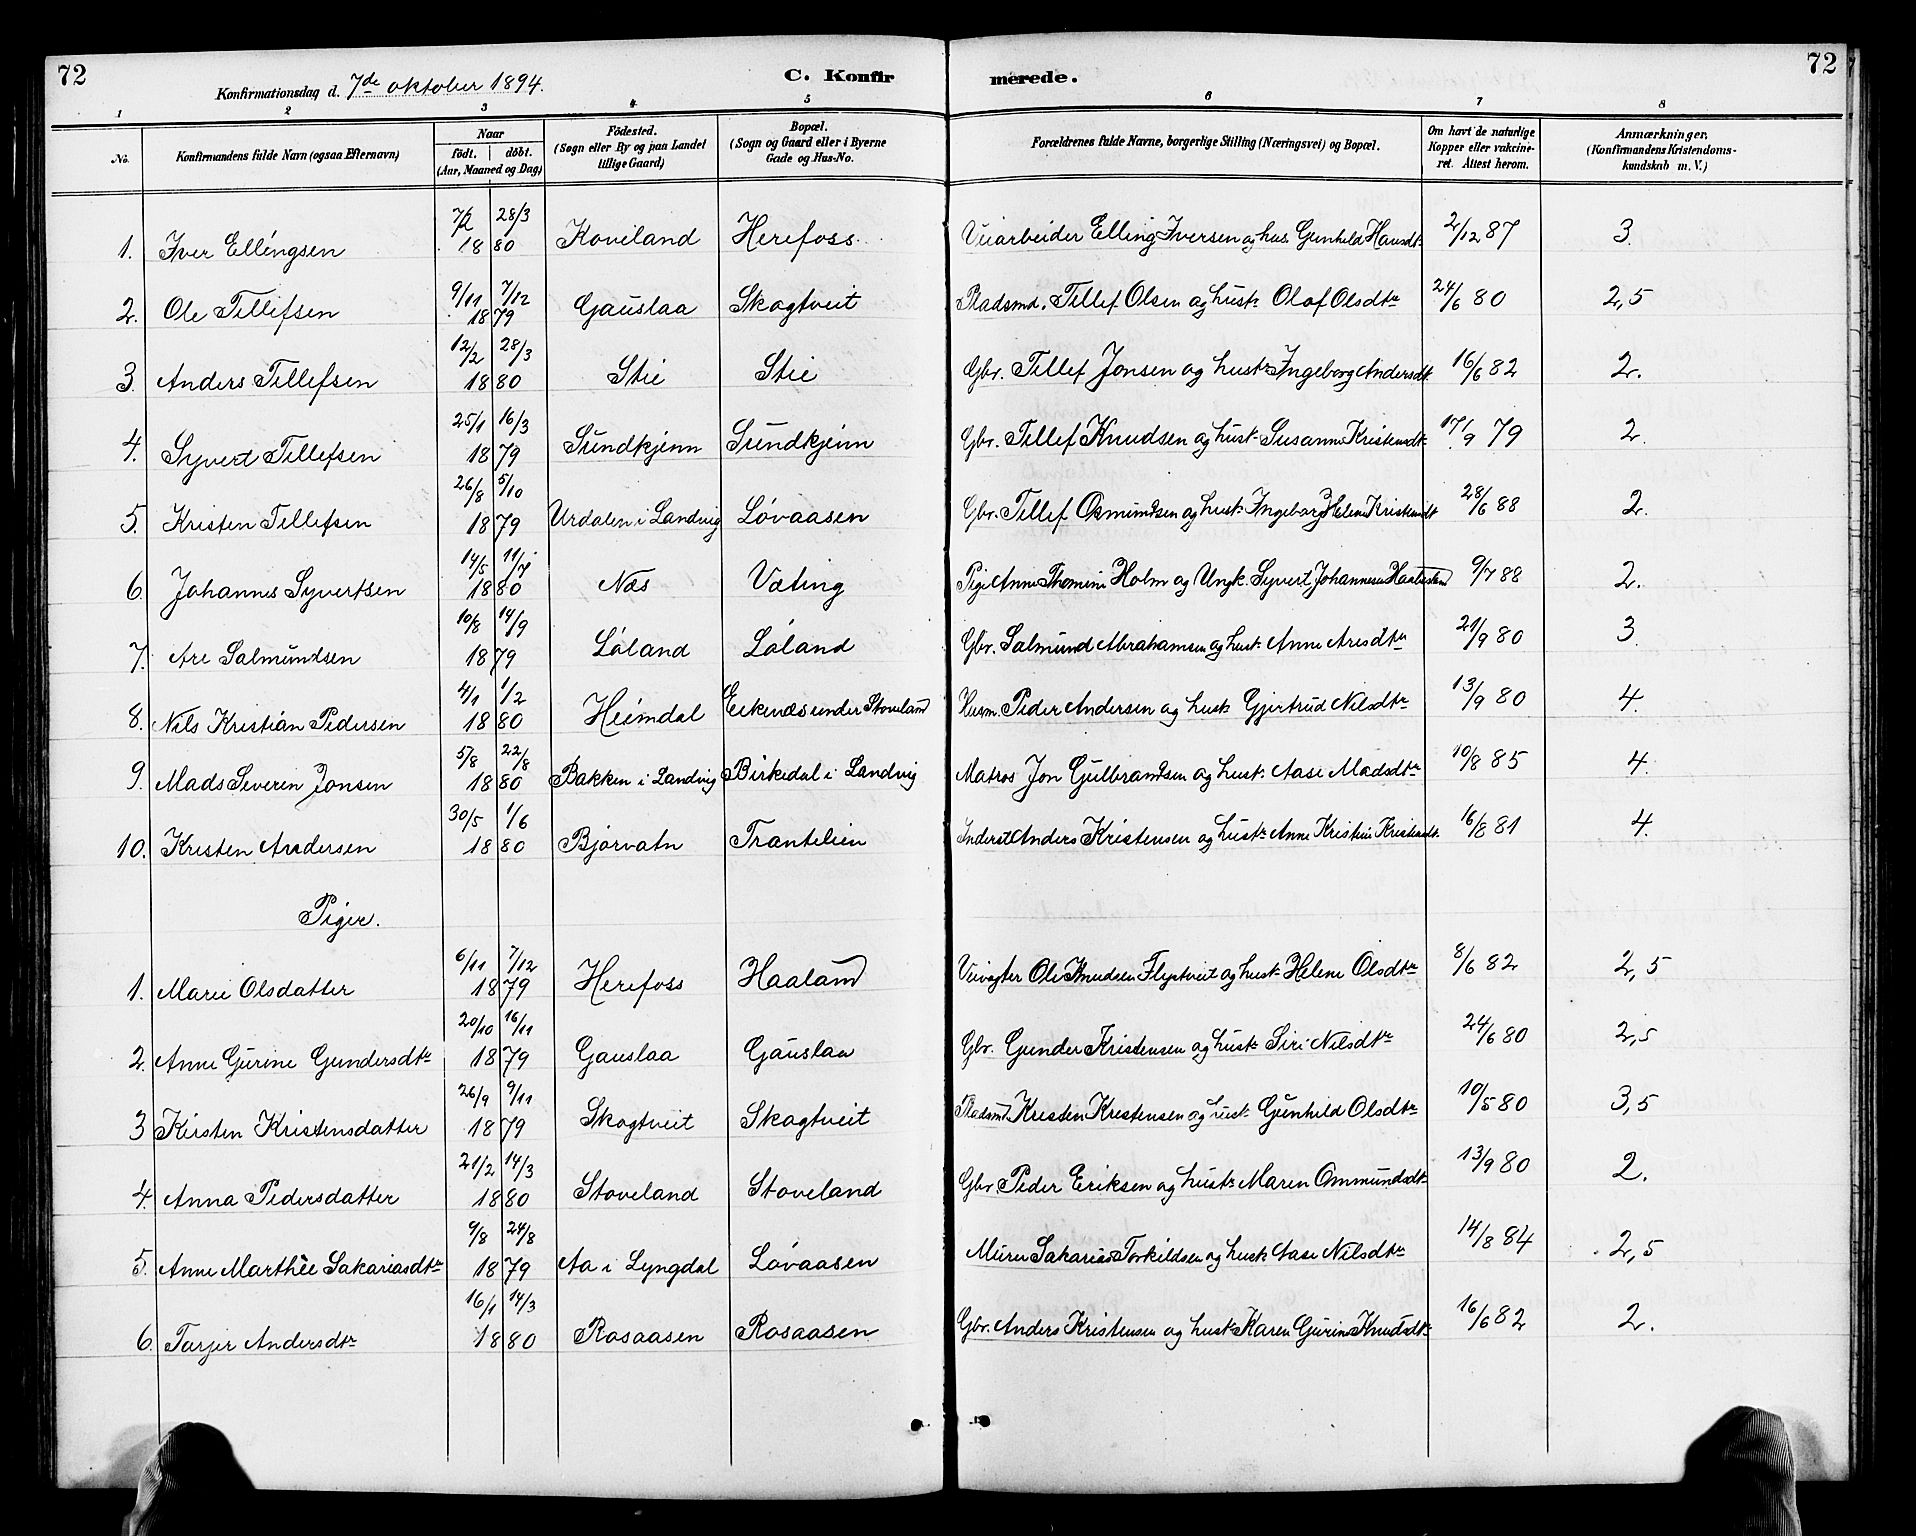 72
Konfirmationsdag d. 7de oktober 1894.
C. Konfir
merede.
72
1 2 3 4 5 6 7 8
No. Konfirmandens fulde Navn (ogsaa Efternavn) Naar født. døbt. (Aar, Maaned og Dag) Födested. (Sogn eller By og paa Landet tillige Gaard) Bopæl. (Sogn og Gaard eller i Byerne Gade og Hus-No. Forældrenes fulde Navne, borgerlige Stilling (Næringsvei) og Bopæl. Om havt de naturlige Kopper eller vakcineret. Attest herom. Anmærkninger, (Konfirmandens Kristendomskundskab m. V.)
1. Iver Ellingsen 7/2 28/3 1880 Koveland Herefoss. Veiarbeider Elling Iversen og hus. Gunhild Hansdt. 2/12 87 3.
2. Ole Tellefsen 9/11 7/12 1879 Gauslaa Skogtveit Pladsmd. Tellef Olsen og hustr Olaf Olsdtr 24/6 80 2,5
3. Anders Tellefsen 12/2 28/3 1880 Stie Stie Gbr. Tellef Jonsen og hustr Ingeborg Andersdt. 16/6 82 2.
4. Syvert Tellefsen 25/1 16/3 1879 Sundkjenn Sundkjenn Gbr. Tellef Knudsen og hustr Susanne Kristensdt. 17/9 79 2.
5. Kristen Tellefsen 26/8 5/10 1879 Urdalen i Landvig Løvaasen Gbr. Tellef Osmundsen og hustr Ingeborg Helene Kristensdt 28/6 88 2.
6. Johannes Syvertsen 14/5 11/7 1880 Næs Væting Pige Anne Thomine Holm og Ungk. Syvert Johannesen 9/7 88 2.
7. Are Salmundsen 10/8 14/9 1879 Løland Løland Gbr. Salmund Abrahamsen og hustr Anne Aresdtr 21/9 80 3
8. Nils Kristian Pedersen 4/1 1/2 1880 Heimdal Eikenæs under Stoveland Husm. Peder Andersen og hust Gjertrud Nilsdtr 13/9 80 4.
9. Mads Severin Jonsen 5/8 22/8 1880 Bakken i Landvig Birkedal i Landvig Matros Jon Gulbrandsen og hustr Aase Madsdtr 10/8 85 4.
10. Kristen Andersen 30/5 1/6 1880 Bjorvatn Trantelien Inderst Anders Kristensen og hustr Anne Kristine Kristensdt. 16/8 81 4.
Piger.
1. Marie Olsdatter 6/11 7/12 1879 Herefoss Haaland Veivogter Ole Knudsen Flystveit og hustr Helene Olsdtr 8/6 82 2,5
2. Anne Gurine Gundersdtr 20/10 16/11 1879 Gauslaa Gauslaa Gbr. Gunder Kristensen og hustr Siri Nilsdtr 24/6 80 2,5
3 Kirsten Kristensdatter 26/9 9/11 1879 Skogtveit Skogtveit Pladsmd Kristen Kristensen og hust Gunhild Olsdtr 10/5 80 3,5
4. Anna Pedersdatter 21/2 14/3 1880 Stoveland Stoveland Gbr. Peder Eriksen og hustr Maren Ommundsdt. 13/9 80 2.
5. Anne Marthee Sakariasdtr 9/8 24/8 1879 Aa i Lyngdal Løvaasen Murer Sakarias Torkildsen og hust Aase Nilsdtr 14/8 84 2,5
6. Tarjer Andersdtr 16/1 14/3 1880 Rosaasen Rosaasen Gbr. Anders Kristensen og hustr Karen Gurine Knudsdt. 16/6 82 2.